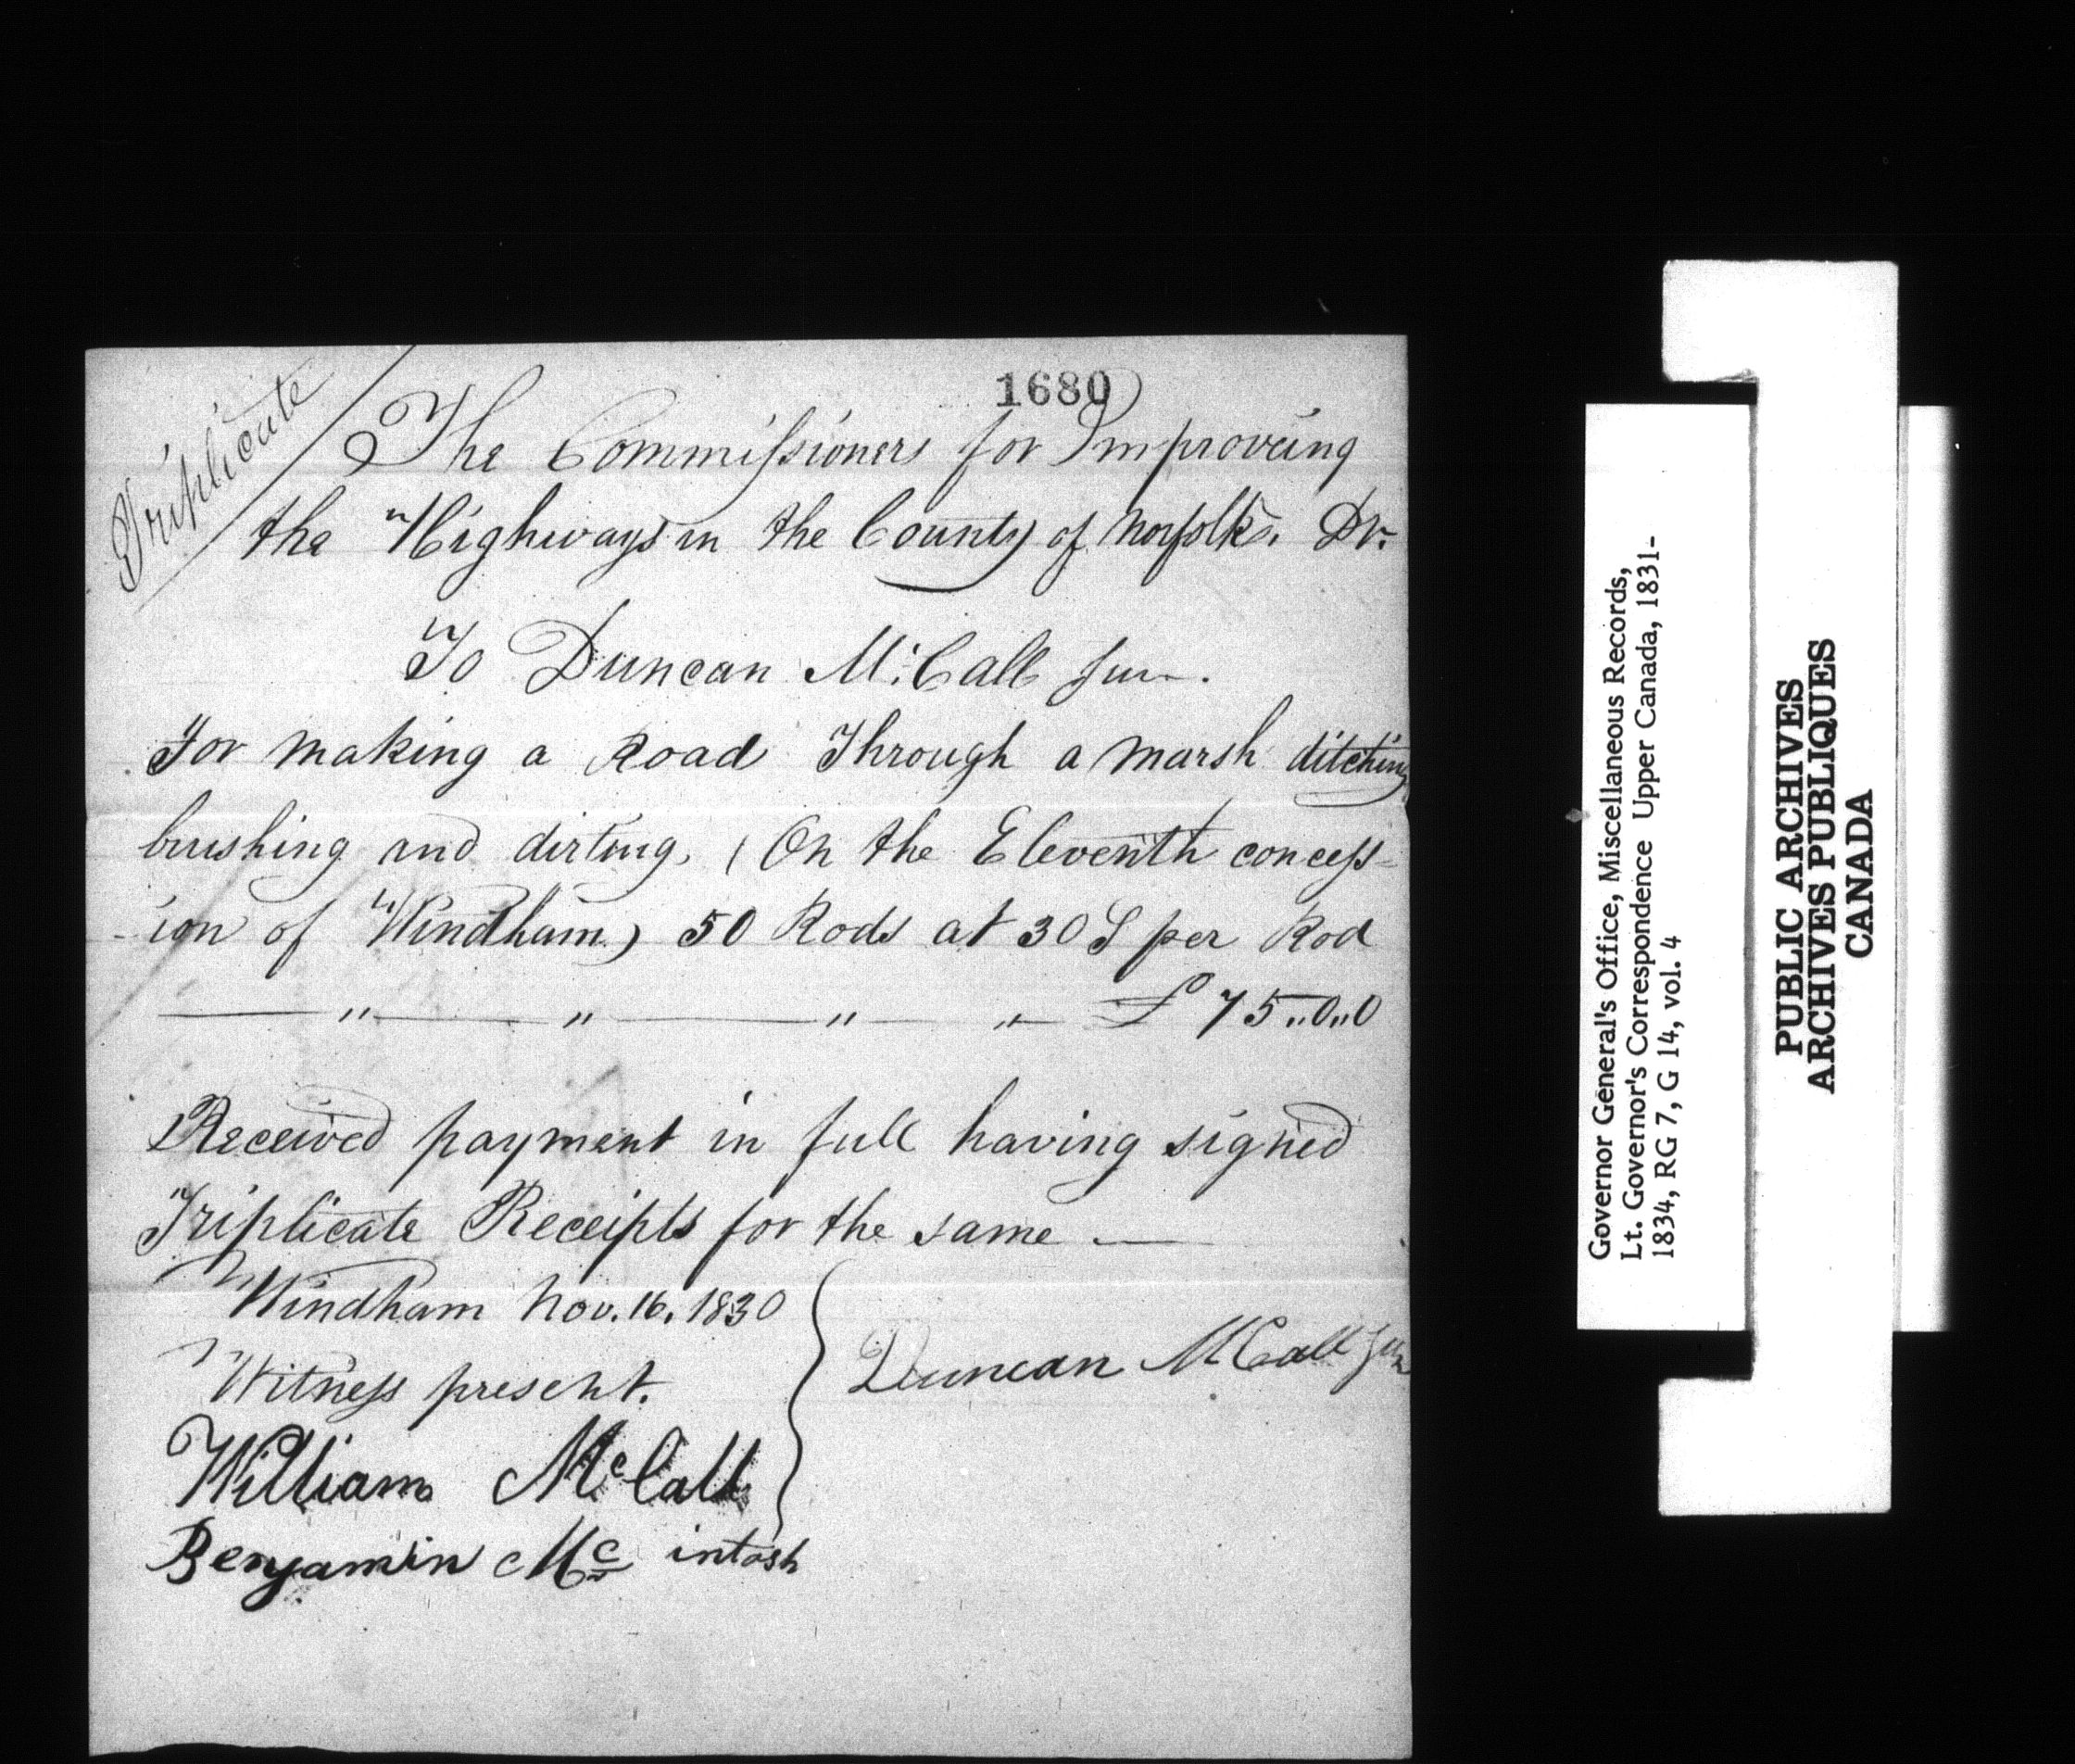 1680
Triplicate
The Commissioners for Improveing
the Highways in the County of Norfolk. Dr.
To Duncan McCall Jun.
For making a Road Through a marsh ditching
brushing and dirting, (On the Eleventh concess-
-ion of Windham) 50 Rods at 30 S per Rod
— " — " — " — " — £ 75..0..0
Received payment in full having signed
Triplicate Receipts for the same —
Windham Nov. 16. 1830
Witness present.
Duncan McCall Jun
William McCall
Benjamin Mc intosh
Governor General's Office, Miscellaneous Records,
Lt. Governor's Correspondence Upper Canada, 1831-
1834, RG 7, G 14, vol. 4
PUBLIC ARCHIVES
ARCHIVES PUBLIQUES
CANADA